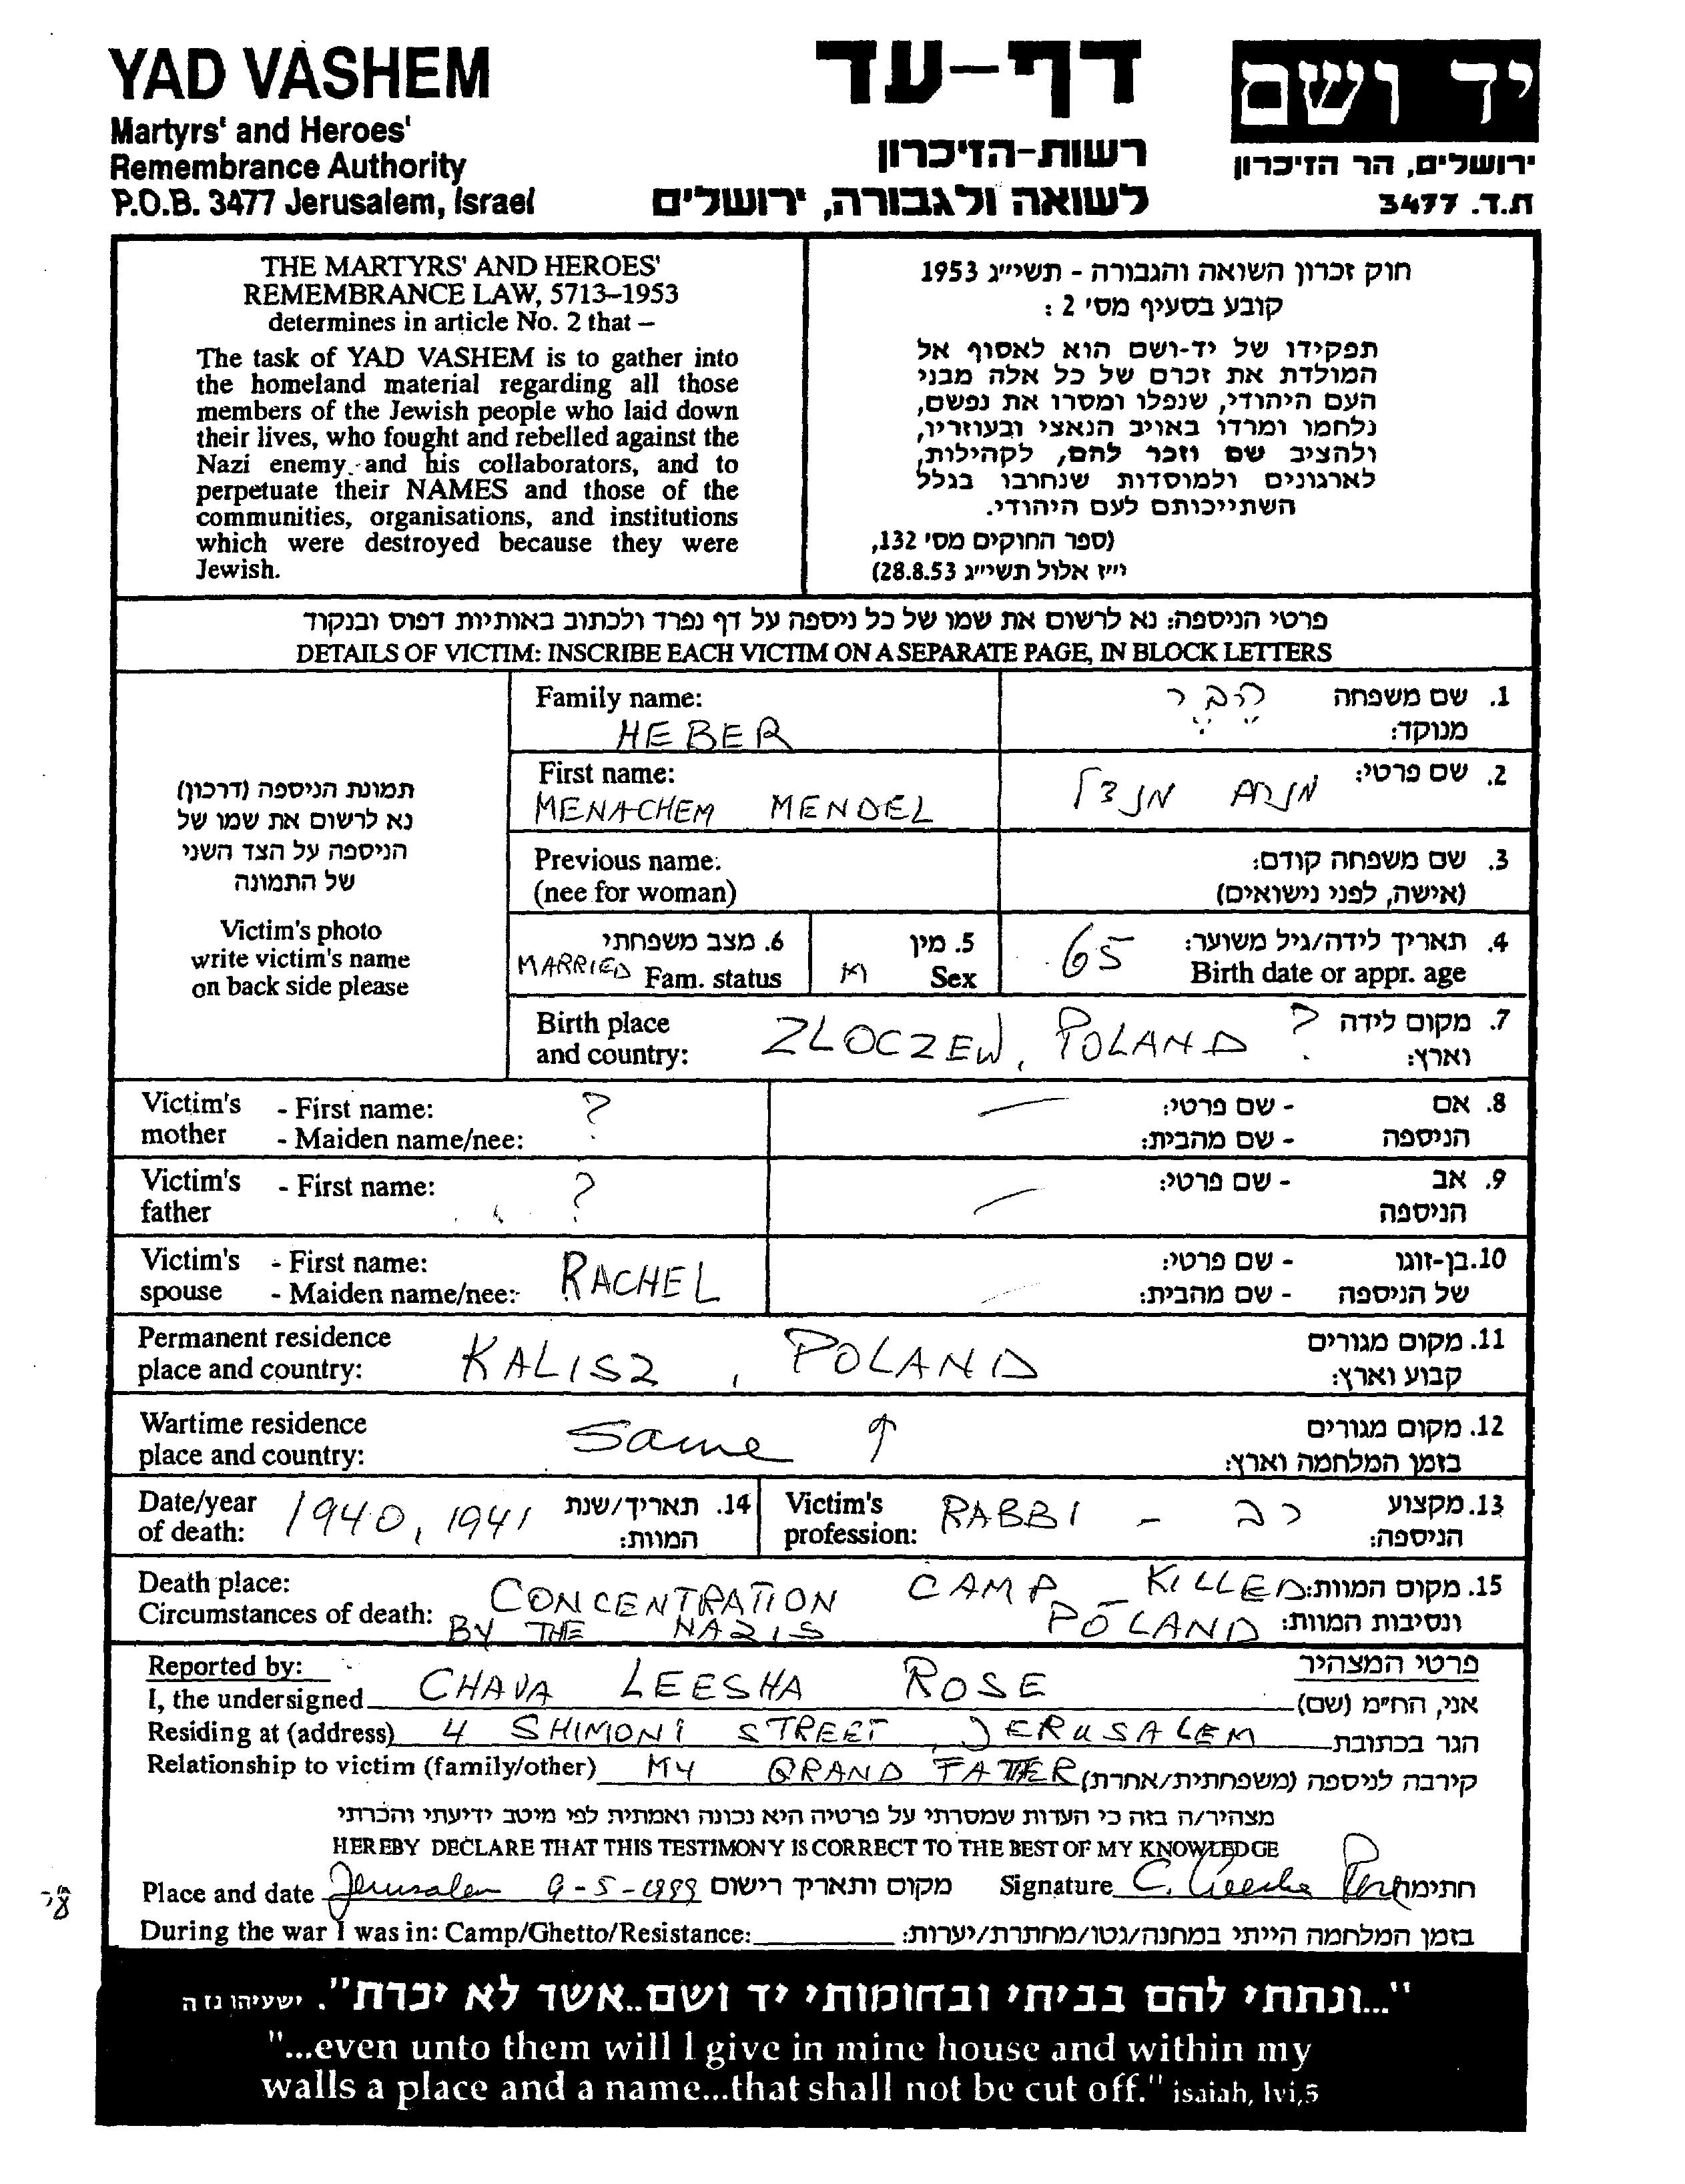 YAD VASHEM
Martyrs' and Heroes'
Remembrance Authority
P.O.B. 3477 Jerusalem, Israel
דף-עד
רשות-הזיכרון
לשואה ולגבורה, ירושלים
יד ושם
ירושלים, הר הזיכרון
ת.ד. 3477
THE MARTYRS' AND HEROES'
REMEMBRANCE LAW, 5713–1953
determines in article No. 2 that –
The task of YAD VASHEM is to gather into
the homeland material regarding all those
members of the Jewish people who laid down
their lives, who fought and rebelled against the
Nazi enemy and his collaborators, and to
perpetuate their NAMES and those of the
communities, organisations, and institutions
which were destroyed because they were
Jewish.
חוק זכרון השואה והגבורה - תשי״ג 1953
קובע בסעיף מס׳ 2 :
תפקידו של יד-ושם הוא לאסוף אל
המולדת את זכרם של כל אלה מבני
העם היהודי, שנפלו ומסרו את נפשם,
נלחמו ומרדו באויב הנאצי ובעוזריו,
ולהציב שם וזכר להם, לקהילות,
לארגונים ולמוסדות שנחרבו בגלל
השתייכותם לעם היהודי.
(ספר החוקים מס׳ 132,
י״ז אלול תשי״ג 28.8.53)
פרטי הניספה: נא לרשום את שמו של כל ניספה על דף נפרד ולכתוב באותיות דפוס ובנקוד
DETAILS OF VICTIM: INSCRIBE EACH VICTIM ON A SEPARATE PAGE, IN BLOCK LETTERS
תמונת הניספה (דרכון)
נא לרשום את שמו של
הניספה על הצד השני
של התמונה
Victim's photo
write victim's name
on back side please
Family name:
HEBER
1. שם משפחה הבר
מנוקד:
First name:
MENACHEM MENDEL
2. שם פרטי: מנחם מנדל
Previous name:
(nee for woman)
3. שם משפחה קודם:
(אישה, לפני נישואים)
6. מצב משפחתי
MARRIED Fam. status
5. מין
M Sex
4. תאריך לידה/גיל משוער:
65 Birth date or appr. age
Birth place
and country: ZLOCZEW, POLAND ?
7. מקום לידה
וארץ:
Victim's - First name: ?
mother - Maiden name/nee:
8. אם - שם פרטי: —
הניספה - שם מהבית:
Victim's - First name: ?
father
9. אב - שם פרטי: —
הניספה
Victim's - First name: RACHEL
spouse - Maiden name/nee:
10. בן-זוגו - שם פרטי: —
של הניספה - שם מהבית:
Permanent residence
place and country: KALISZ, POLAND
11. מקום מגורים
קבוע וארץ:
Wartime residence
place and country: Same ↑
12. מקום מגורים
בזמן המלחמה וארץ:
Date/year
of death: 1940, 1941
14. תאריך/שנת
המוות:
Victim's
profession: RABBI - רב
13. מקצוע
הניספה:
Death place: CONCENTRATION CAMP - KILLED
Circumstances of death: BY THE NAZIS POLAND
15. מקום המוות:
ונסיבות המוות:
Reported by:
פרטי המצהיר
I, the undersigned CHAVA LEESHA ROSE אני, הח״מ (שם)
Residing at (address) 4 SHIMONI STREET, JERUSALEM הגר בכתובת
Relationship to victim (family/other) MY GRAND FATHER קירבה לניספה (משפחתית/אחרת)
מצהיר/ה בזה כי העדות שמסרתי על פרטיה היא נכונה ואמתית לפי מיטב ידיעתי והכרתי
HEREBY DECLARE THAT THIS TESTIMONY IS CORRECT TO THE BEST OF MY KNOWLEDGE
Place and date Jerusalem 9-5-1999 מקום ותאריך רישום Signature C. Leesha Rose חתימה
During the war I was in: Camp/Ghetto/Resistance: בזמן המלחמה הייתי במחנה/גטו/מחתרת/יערות:
"...ונתתי להם בביתי ובחומותי יד ושם..אשר לא יכרת". ישעיהו נו ה
"...even unto them will I give in mine house and within my
walls a place and a name...that shall not be cut off." isaiah, lvi,5